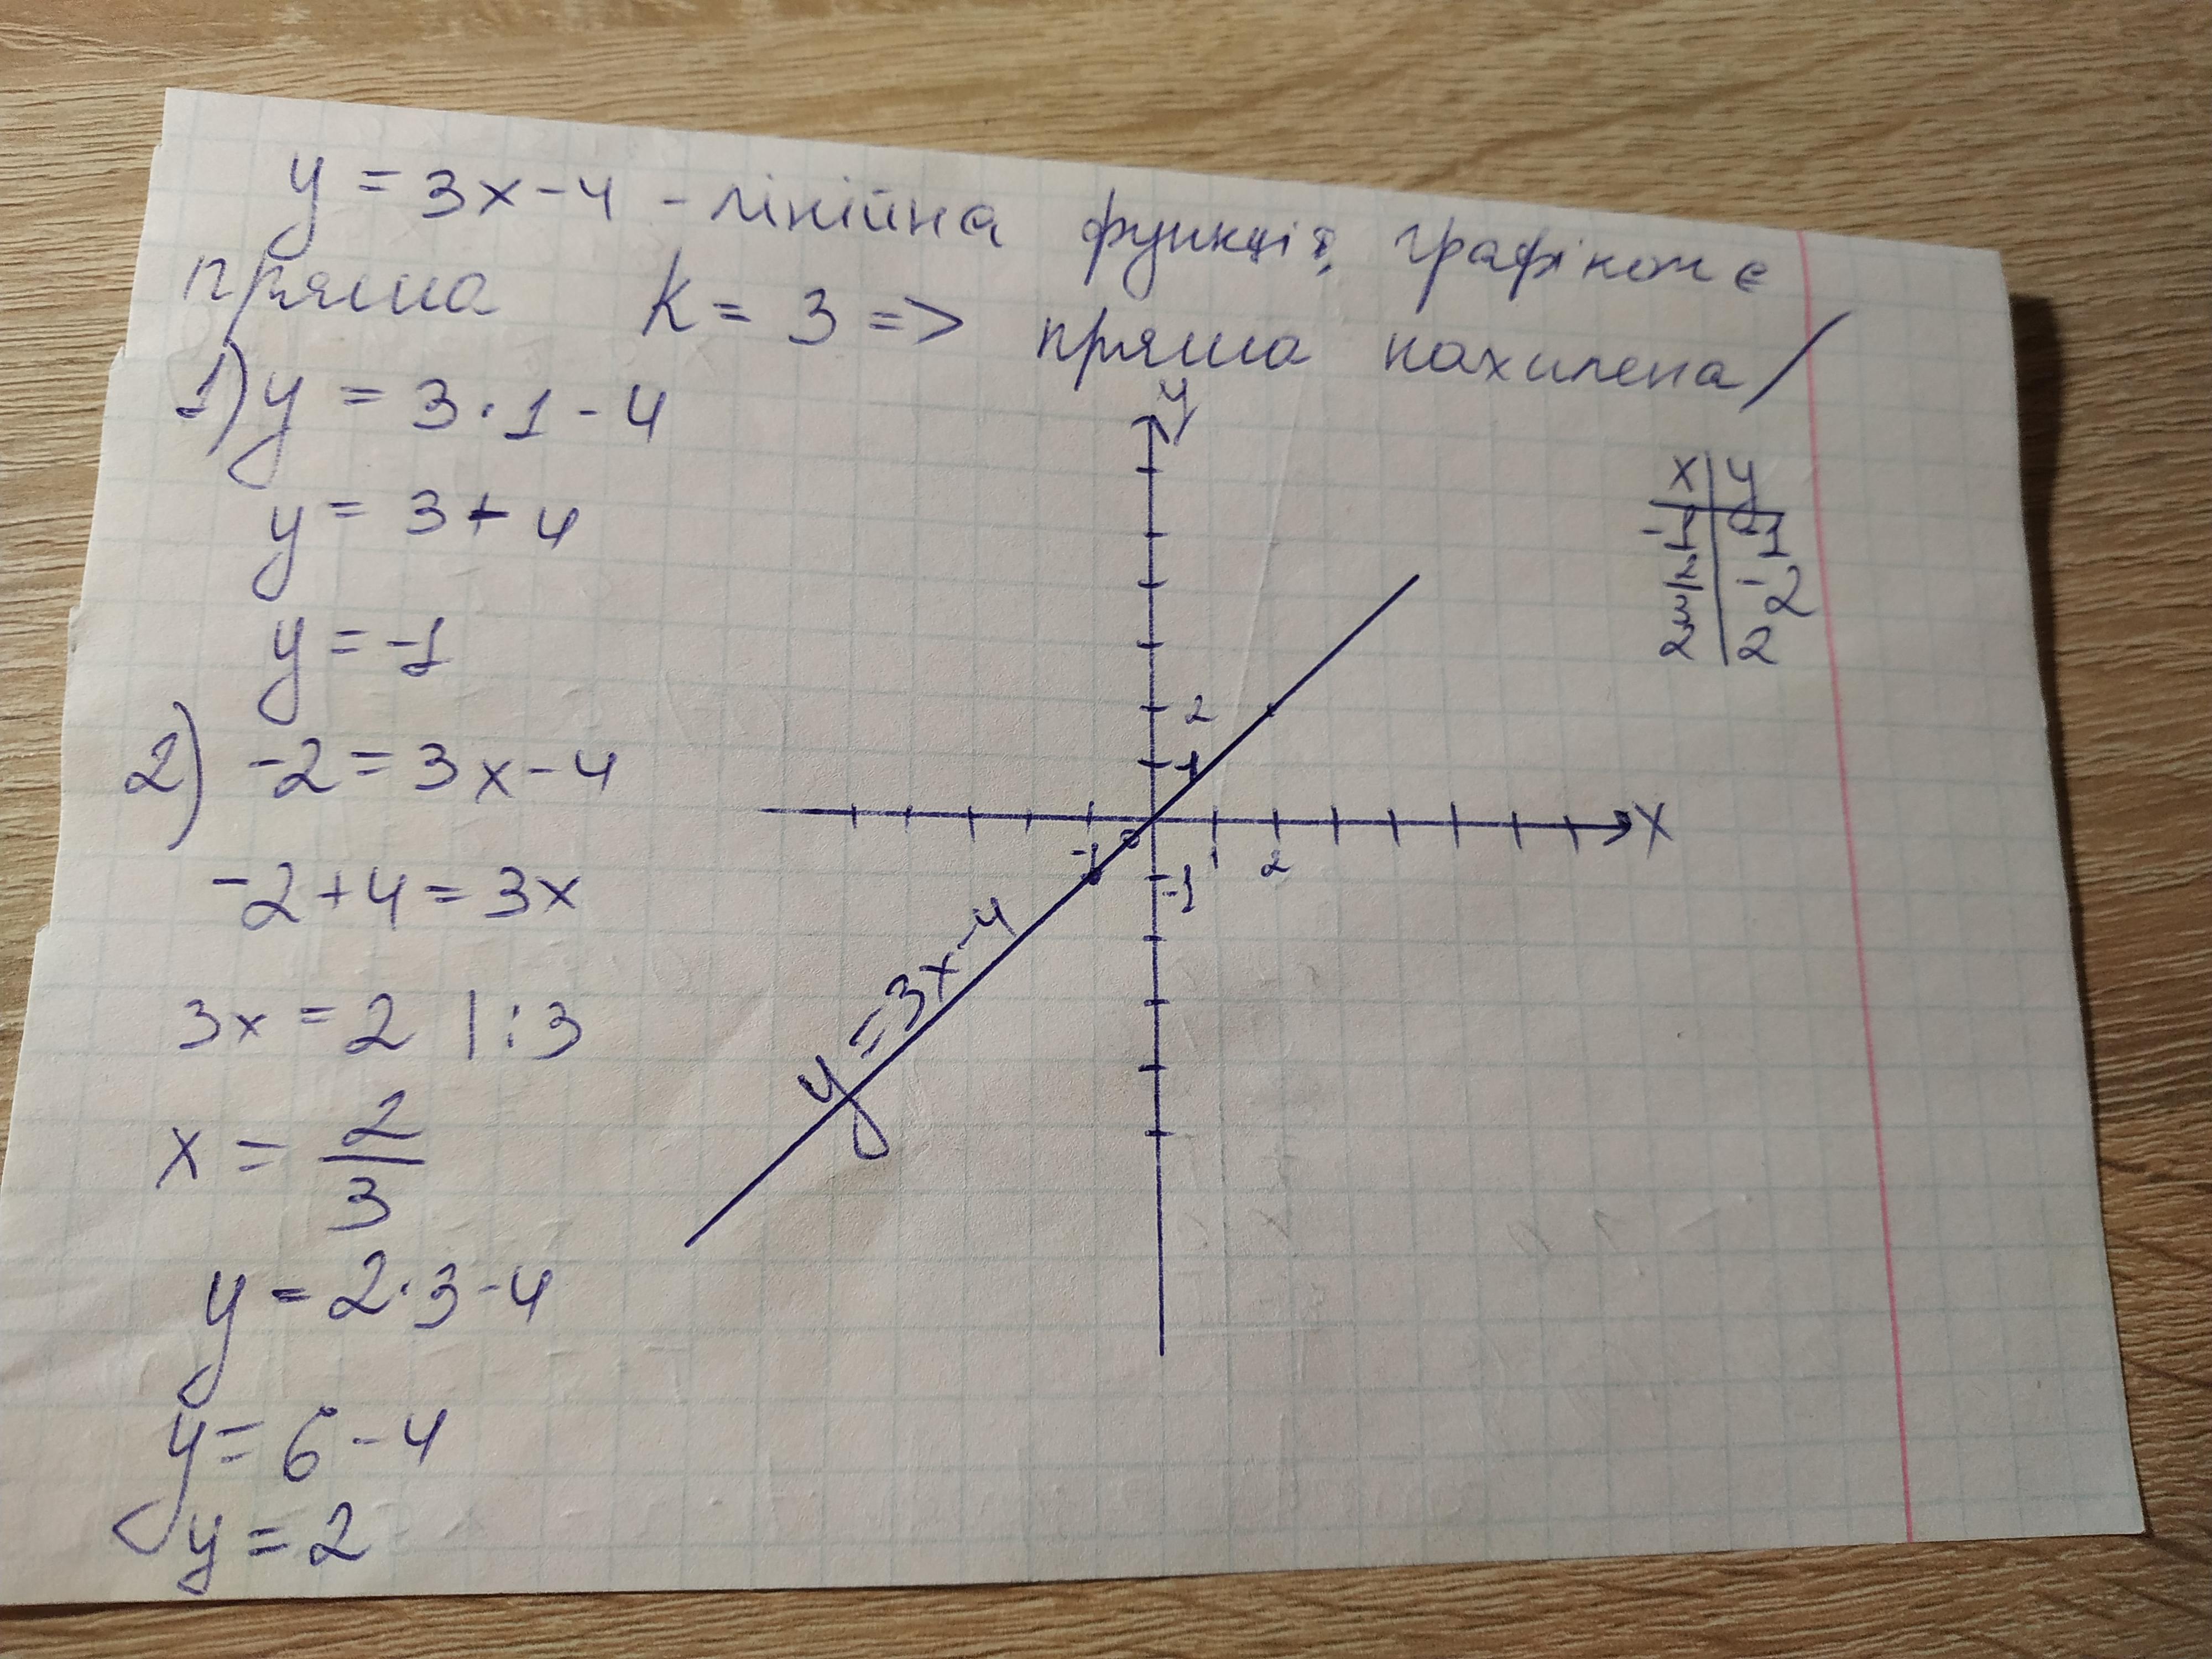 y = 3x - 4 - лінійна функція, графіком є
пряма K = 3 => пряма нахилена /
1) y = 3 · 1 - 4
y = 3 - 4
y = -1
2) -2 = 3x - 4
-2 + 4 = 3x
3x = 2 | : 3
x = 2/3
y = 2 · 3 - 4
y = 6 - 4
y = 2
y
x y
-1 -1
2/3 -2
2 2
2
1
x
-1 0 1 2
-1
y = 3x - 4